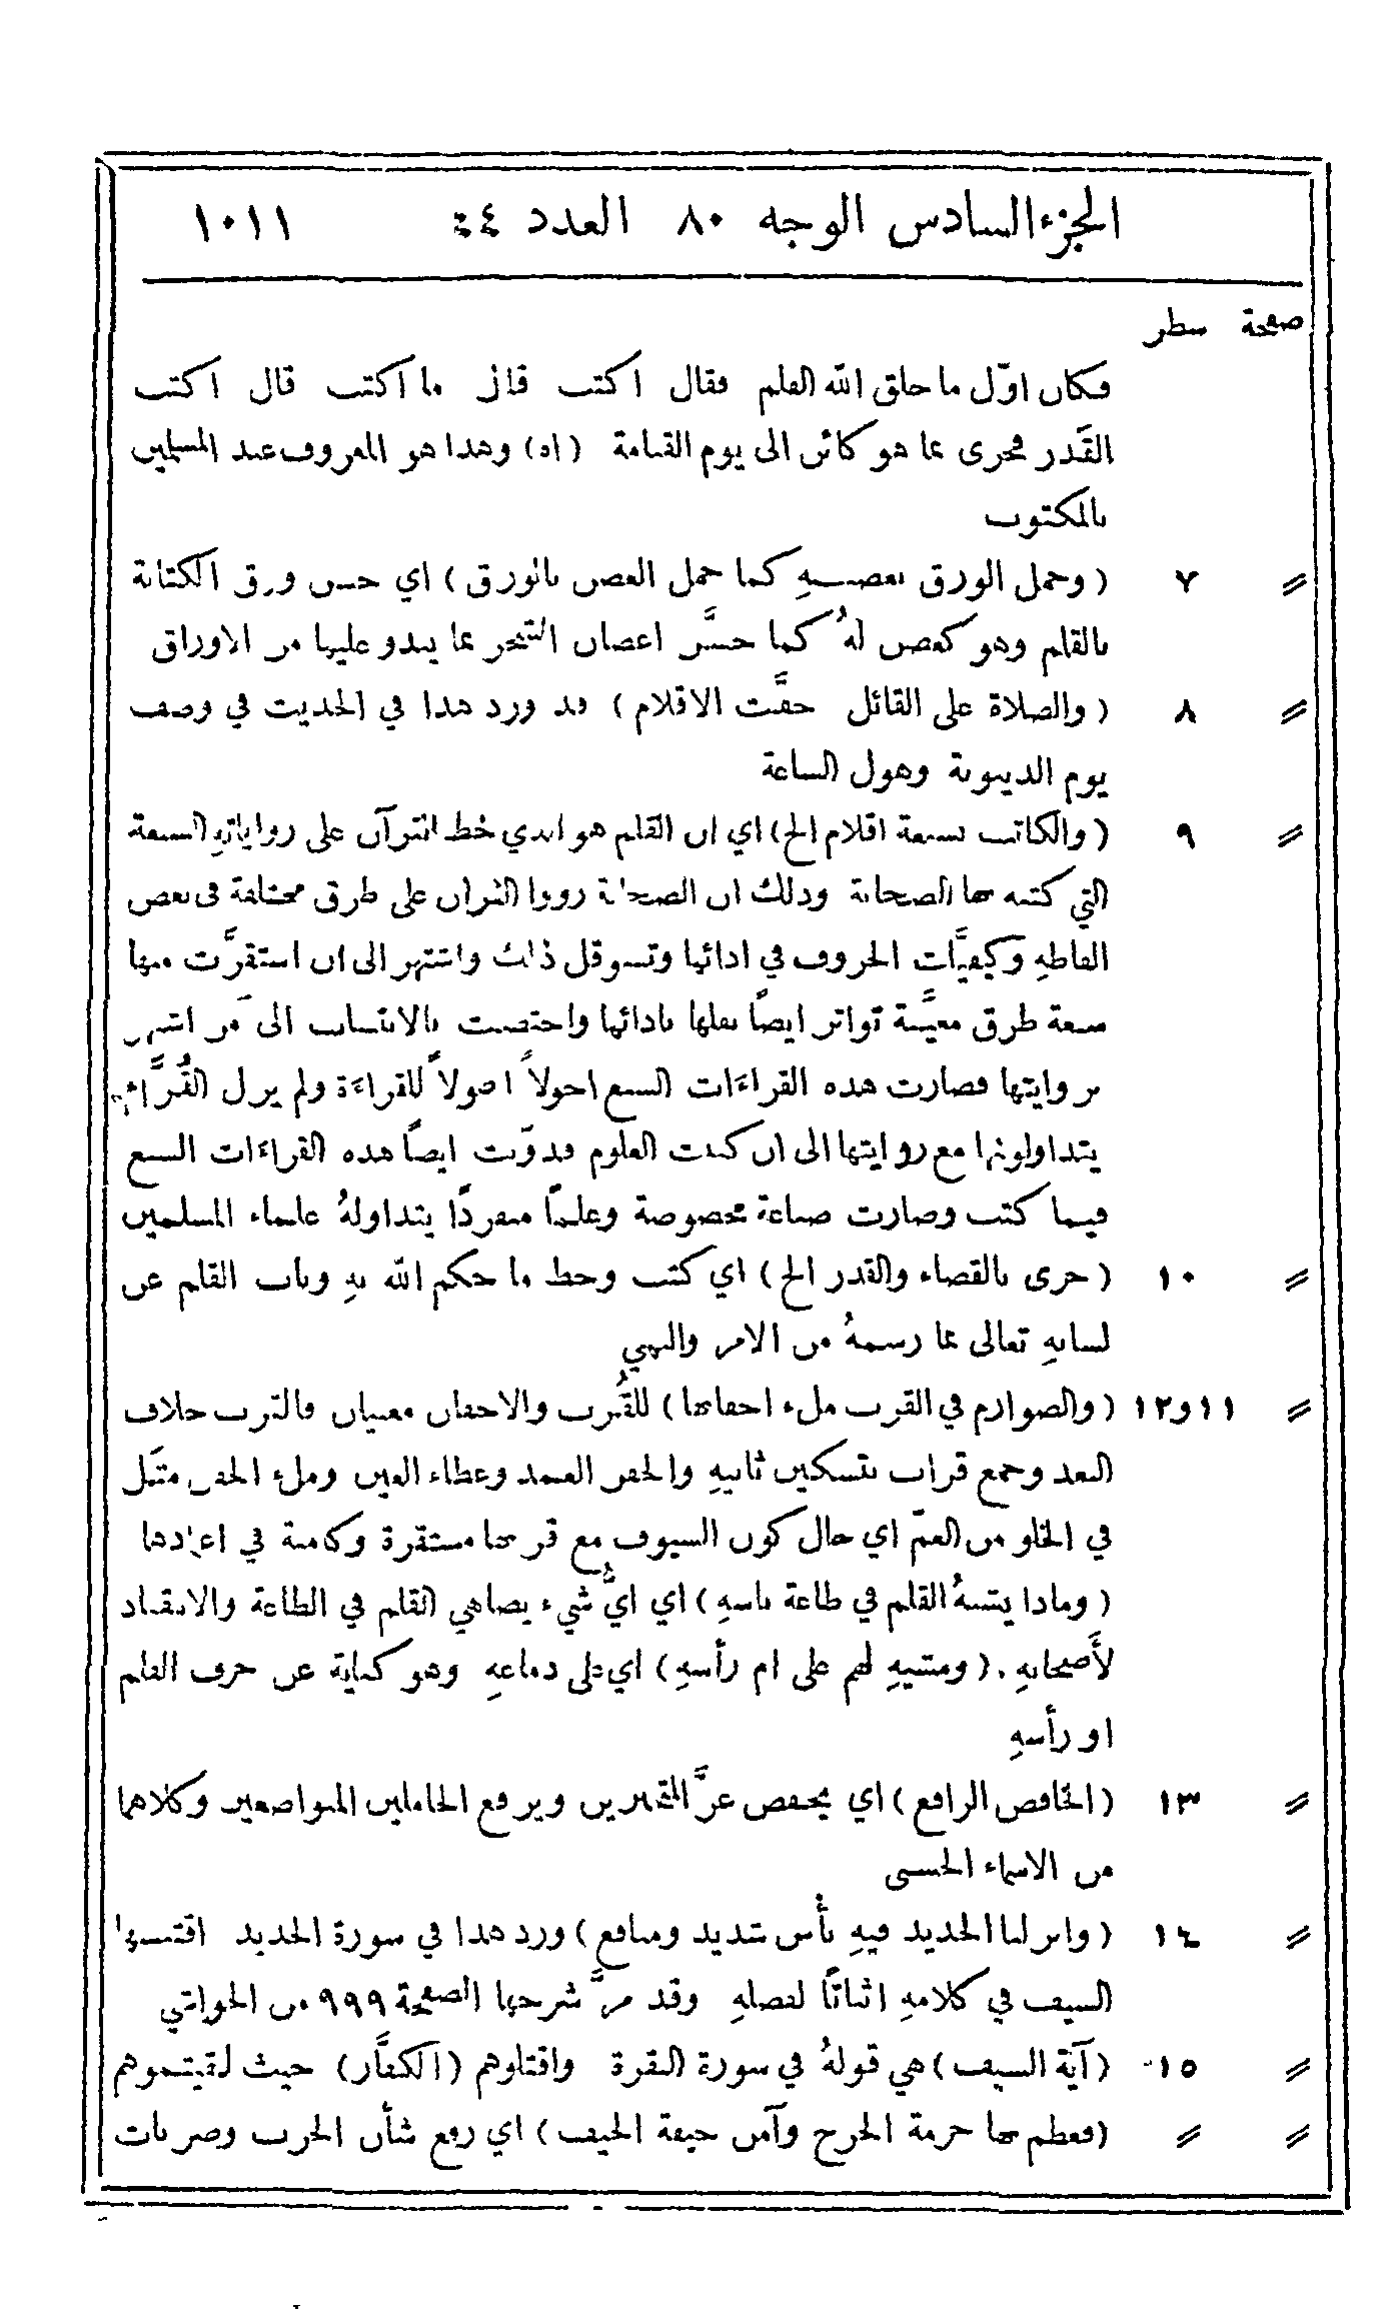 الجزء السادس الوجه ٨٠ العدد ٤٤ ١٠١١
صفحة سطر
فكان اوّل ما خلق الله القلم فقال اكتب قال ما اكتب قال اكتب
القَدر فجرى بما هو كائن الى يوم القيامة (اه) وهذا هو المعروف عند المسلمين
بالمكتوب
〃 ٧ (وحمل الورق بغصنهِ كما حمل الغصن بالورق) اي حسن ورق الكتابة
بالقلم وهو كغصن لهُ كما حسَّن اغصان الشجر بما يبدو عليها من الاوراق
〃 ٨ (والصلاة على القائل جفَّت الاقلام) قد ورد هذا في الحديث في وصف
يوم الدينونة وهول الساعة
〃 ٩ (والكاتب بسبعة اقلام الخ) اي ان القلم هو الذي خط القرآن على رواياتهِ السبعة
التي كتبه بها الصحابة وذلك ان الصحابة رووا القران على طرق مختلفة في بعض
الفاظهِ وكيفيَّات الحروف في ادائها وتنوقل ذلك واشتهر الى ان استقرَّت منها
سبعة طرق معيَّنة تواتر ايضًا نقلها بادائها واختصت بالانتساب الى مَن اشتهر
بروايتها فصارت هذه القراءَات السبع احولاً اصولاً للقراءَة ولم يزل القُرَّاء
يتداولونها مع روايتها الى ان كتبت العلوم فدوّنت ايضًا هذه القراءَات السبع
فيما كتب وصارت صناعة مخصوصة وعلمًا منفردًا يتداولهُ علماء المسلمين
〃 ١٠ (جرى بالقضاء والقدر الخ) اي كتب وخط ما حكم الله بهِ وناب القلم عن
لسانهِ تعالى بما رسمهُ من الامر والنهي
〃 ١١و١٢ (والصوارم في القرب ملء اجفانها) للقُرب والاجفان معنيان فالقرب خلاف
البعد وجمع قراب بتسكين ثانيهِ والجفن الغمد وغطاء العين وملء الجفن مثَل
في الخلو من الغمّ اي حال كون السيوف مع قربها مستقرة وكامنة في اغمادها
(وماذا يشبهُ القلم في طاعة ناسهِ) اي ايُّ شيء يضاهي القلم في الطاعة والانقياد
لأَصحابهِ . (ومشيهِ لهم على ام رأسهِ) اي على دماغهِ وهو كناية عن حرف القلم
او رأسهِ
〃 ١٣ (الخافض الرافع) اي يخفض عزَّ المتجبرين ويرفع الخاملين المتواضعين وكلاهما
من الاسماء الحسنى
〃 ١٤ (وانزلنا الحديد فيهِ بأْس شديد ومنافع) ورد هذا في سورة الحديد اقتبسها
السيف في كلامهِ اثباتًا لفضلهِ وقد مرَّ شرحها الصفحة ٩٩٩ من الحواشي
〃 ١٥ (آية السيف) هي قولهُ في سورة البقرة واقتلوهم (الكفَّار) حيث لقيتموهم
〃 〃 (فعظم بها حرمة الجرح وآمن خيفة الحيف) اي رفع شأن الحرب وضربات